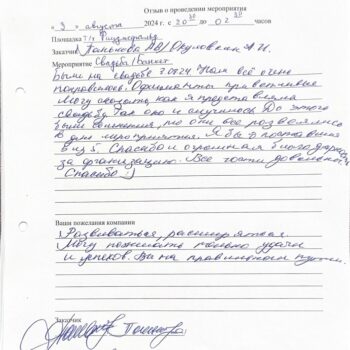 Отзыв о проведении мероприятия
« 3 » августа 2024 г. с 20 30 до 02 30 часов
Площадка
Заказчик Панькова АВ/
Мероприятие Свадьба/
были на свадьбе Нам всё очень
понравилось. Официанты приветливые
Могу сказать, как я представляла
свадьбу, так оно и случилось. До этого
были сомнения, но они все развеялись
в день мероприятия. Я бы поставила
6 из 5. Спасибо и огромная благодарность
за организацию. Все гости довольны.
Спасибо :)
Ваши пожелания компании
Развиваться, расширяться.
Могу пожелать только удачи
и успехов. Вы на правильном пути.
Заказчик